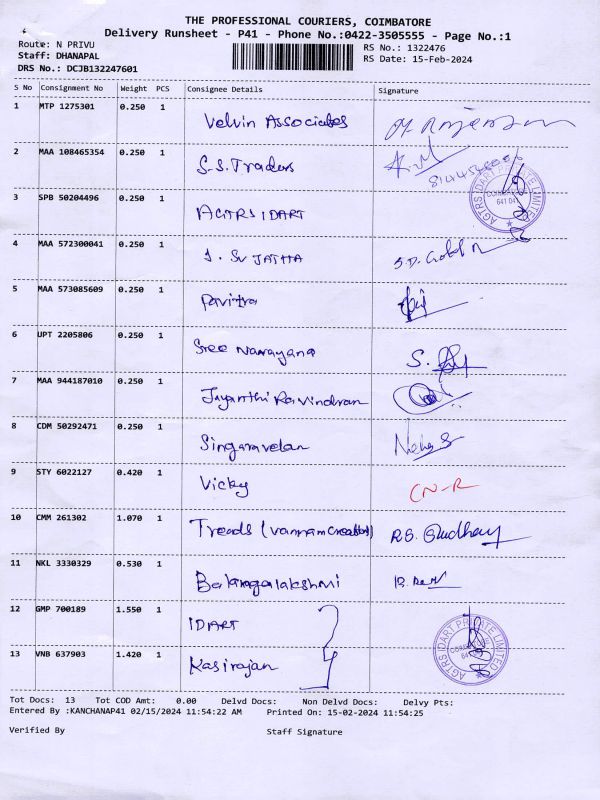 THE PROFESSIONAL COURIERS, COIMBATORE
Delivery Runsheet - P41 - Phone No.:0422-3505555 - Page No.:1
Route: N PRIVU
RS No.: 1322476
Staff: DHANAPAL
RS Date: 15-Feb-2024
DRS No.: DCJB132247601
S No Consignment No Weight PCS Consignee Details Signature
1 MTP 1275301 0.250 1 Velvin Associates
2 MAA 108465354 0.250 1 S.S. Traders
3 SPB 50204496 0.250 1 AGTRS IDART
AGTRS IDART PRIVATE LIMITED
4 MAA 572300041 0.250 1 J. SU JATHA
5 MAA 573085609 0.250 1 Pavitra
6 UPT 2205806 0.250 1 Sree Narayana
7 MAA 944187010 0.250 1 Jayanthi Ravindran
8 CDM 50292471 0.250 1 Singaravelan
9 STY 6022127 0.420 1 Vicky CN-R
10 CMM 261302 1.070 1 Treads (Vannam Creation)
11 NKL 3330329 0.530 1
12 GMP 700189 1.550 1 IDART
AGTRS IDART PRIVATE LIMITED
13 VNB 637903 1.420 1 Kasirajan
Tot Docs: 13 Tot COD Amt: 0.00 Delvd Docs: Non Delvd Docs: Delvy Pts:
Entered By :KANCHANAP41 02/15/2024 11:54:22 AM Printed On: 15-02-2024 11:54:25
Verified By Staff Signature